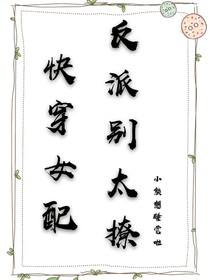 快穿女配
反派别太撩
小熊想睡觉啦